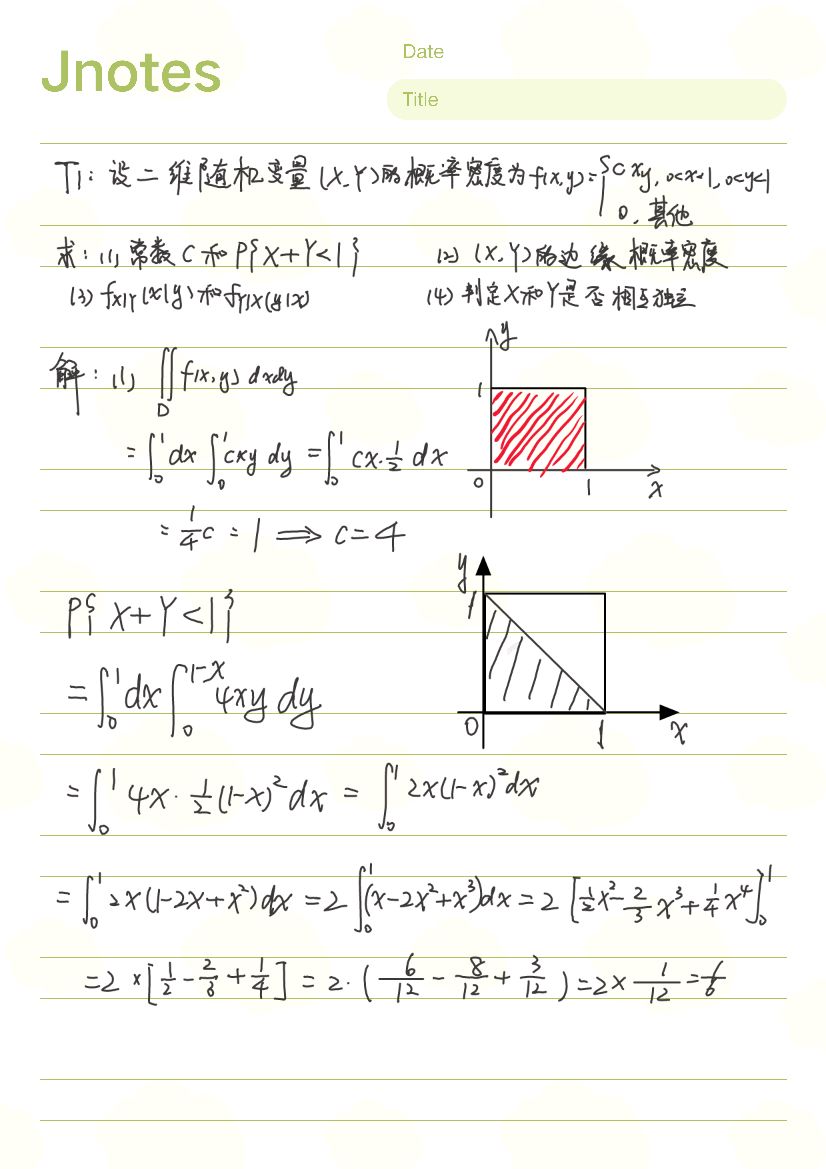 Jnotes
Date
Title
T1: 设二维随机变量 (X,Y)的概率密度为f(x,y)={cxy, 0<x<1, 0<y<1
0, 其他
求: (1) 常数 C 和 P{X+Y<1} (2) (X,Y)的边缘概率密度
(3) fX|Y(x|y)和fY|X(y|x) (4) 判定X和Y是否相互独立
解: (1) ∬D f(x,y) dxdy
= ∫₀¹dx ∫₀¹cxy dy = ∫₀¹ cx·1/2 dx
= 1/4 c = 1 ⟹ c=4
y
1
0
1
x
P{X+Y<1}
= ∫₀¹dx ∫₀^(1-x) 4xy dy
y
1
0
1
x
= ∫₀¹ 4x · 1/2(1-x)² dx = ∫₀¹ 2x(1-x)²dx
= ∫₀¹ 2x(1-2x+x²)dx = 2∫₀¹(x-2x²+x³)dx = 2[1/2x²-2/3x³+1/4x⁴]₀¹
=2×[1/2-2/3+1/4] = 2·(6/12-8/12+3/12)=2×1/12=1/6